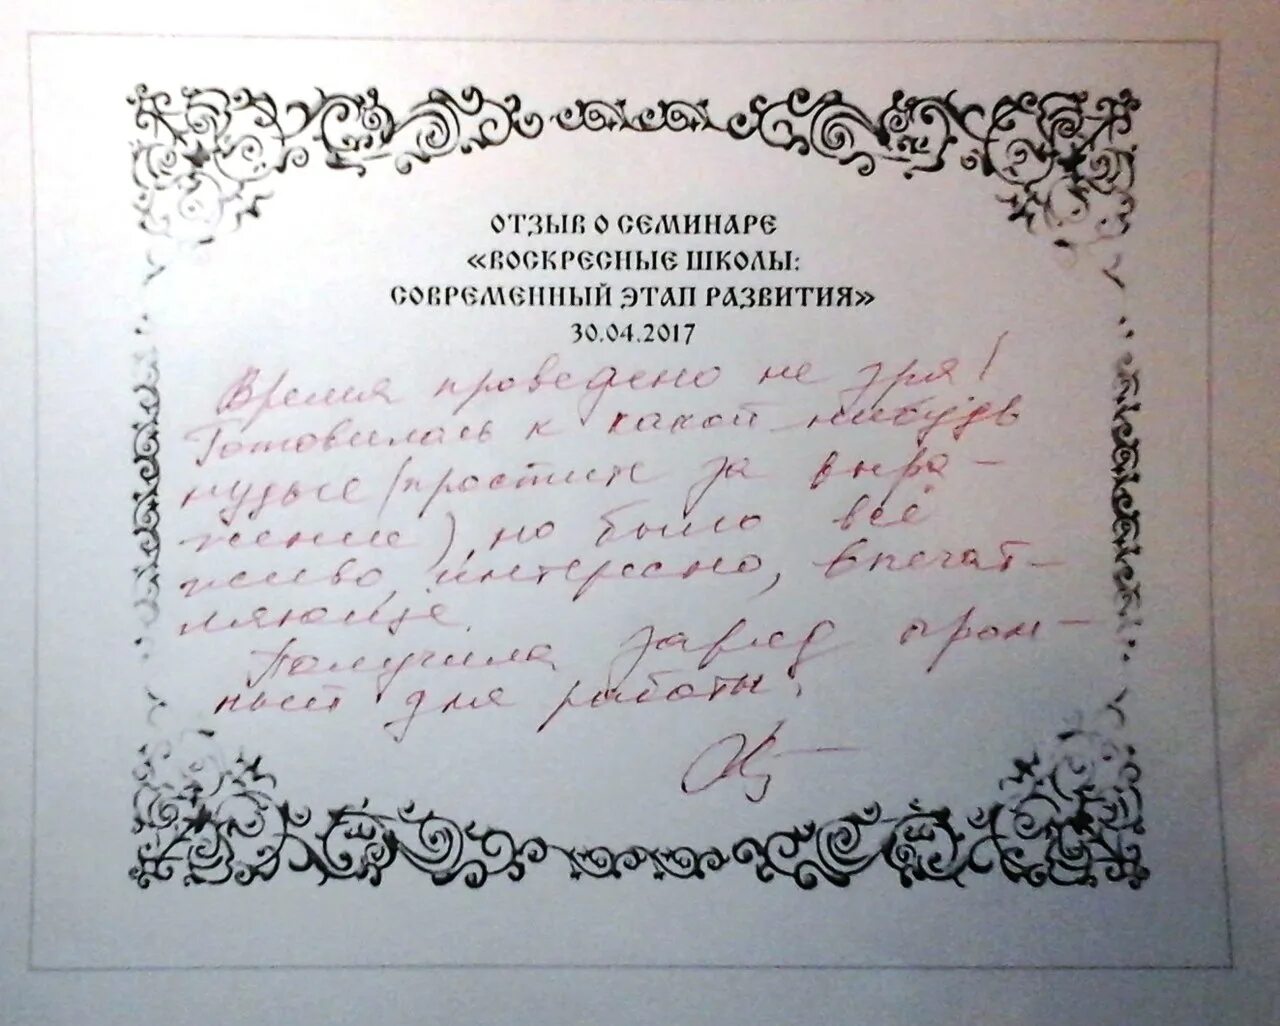 ОТЗЫВ О СЕМИНАРЕ
«ВОСКРЕСНЫЕ ШКОЛЫ:
СОВРЕМЕННЫЙ ЭТАП РАЗВИТИЯ»
30.04.2017
Время проведено не зря!
Готовилась к какой-нибудь
нудьге (простите за выра-
жение), но было всё
живо, интересно, впечат-
ляюще.
Получила заряд огром-
ный для работы.